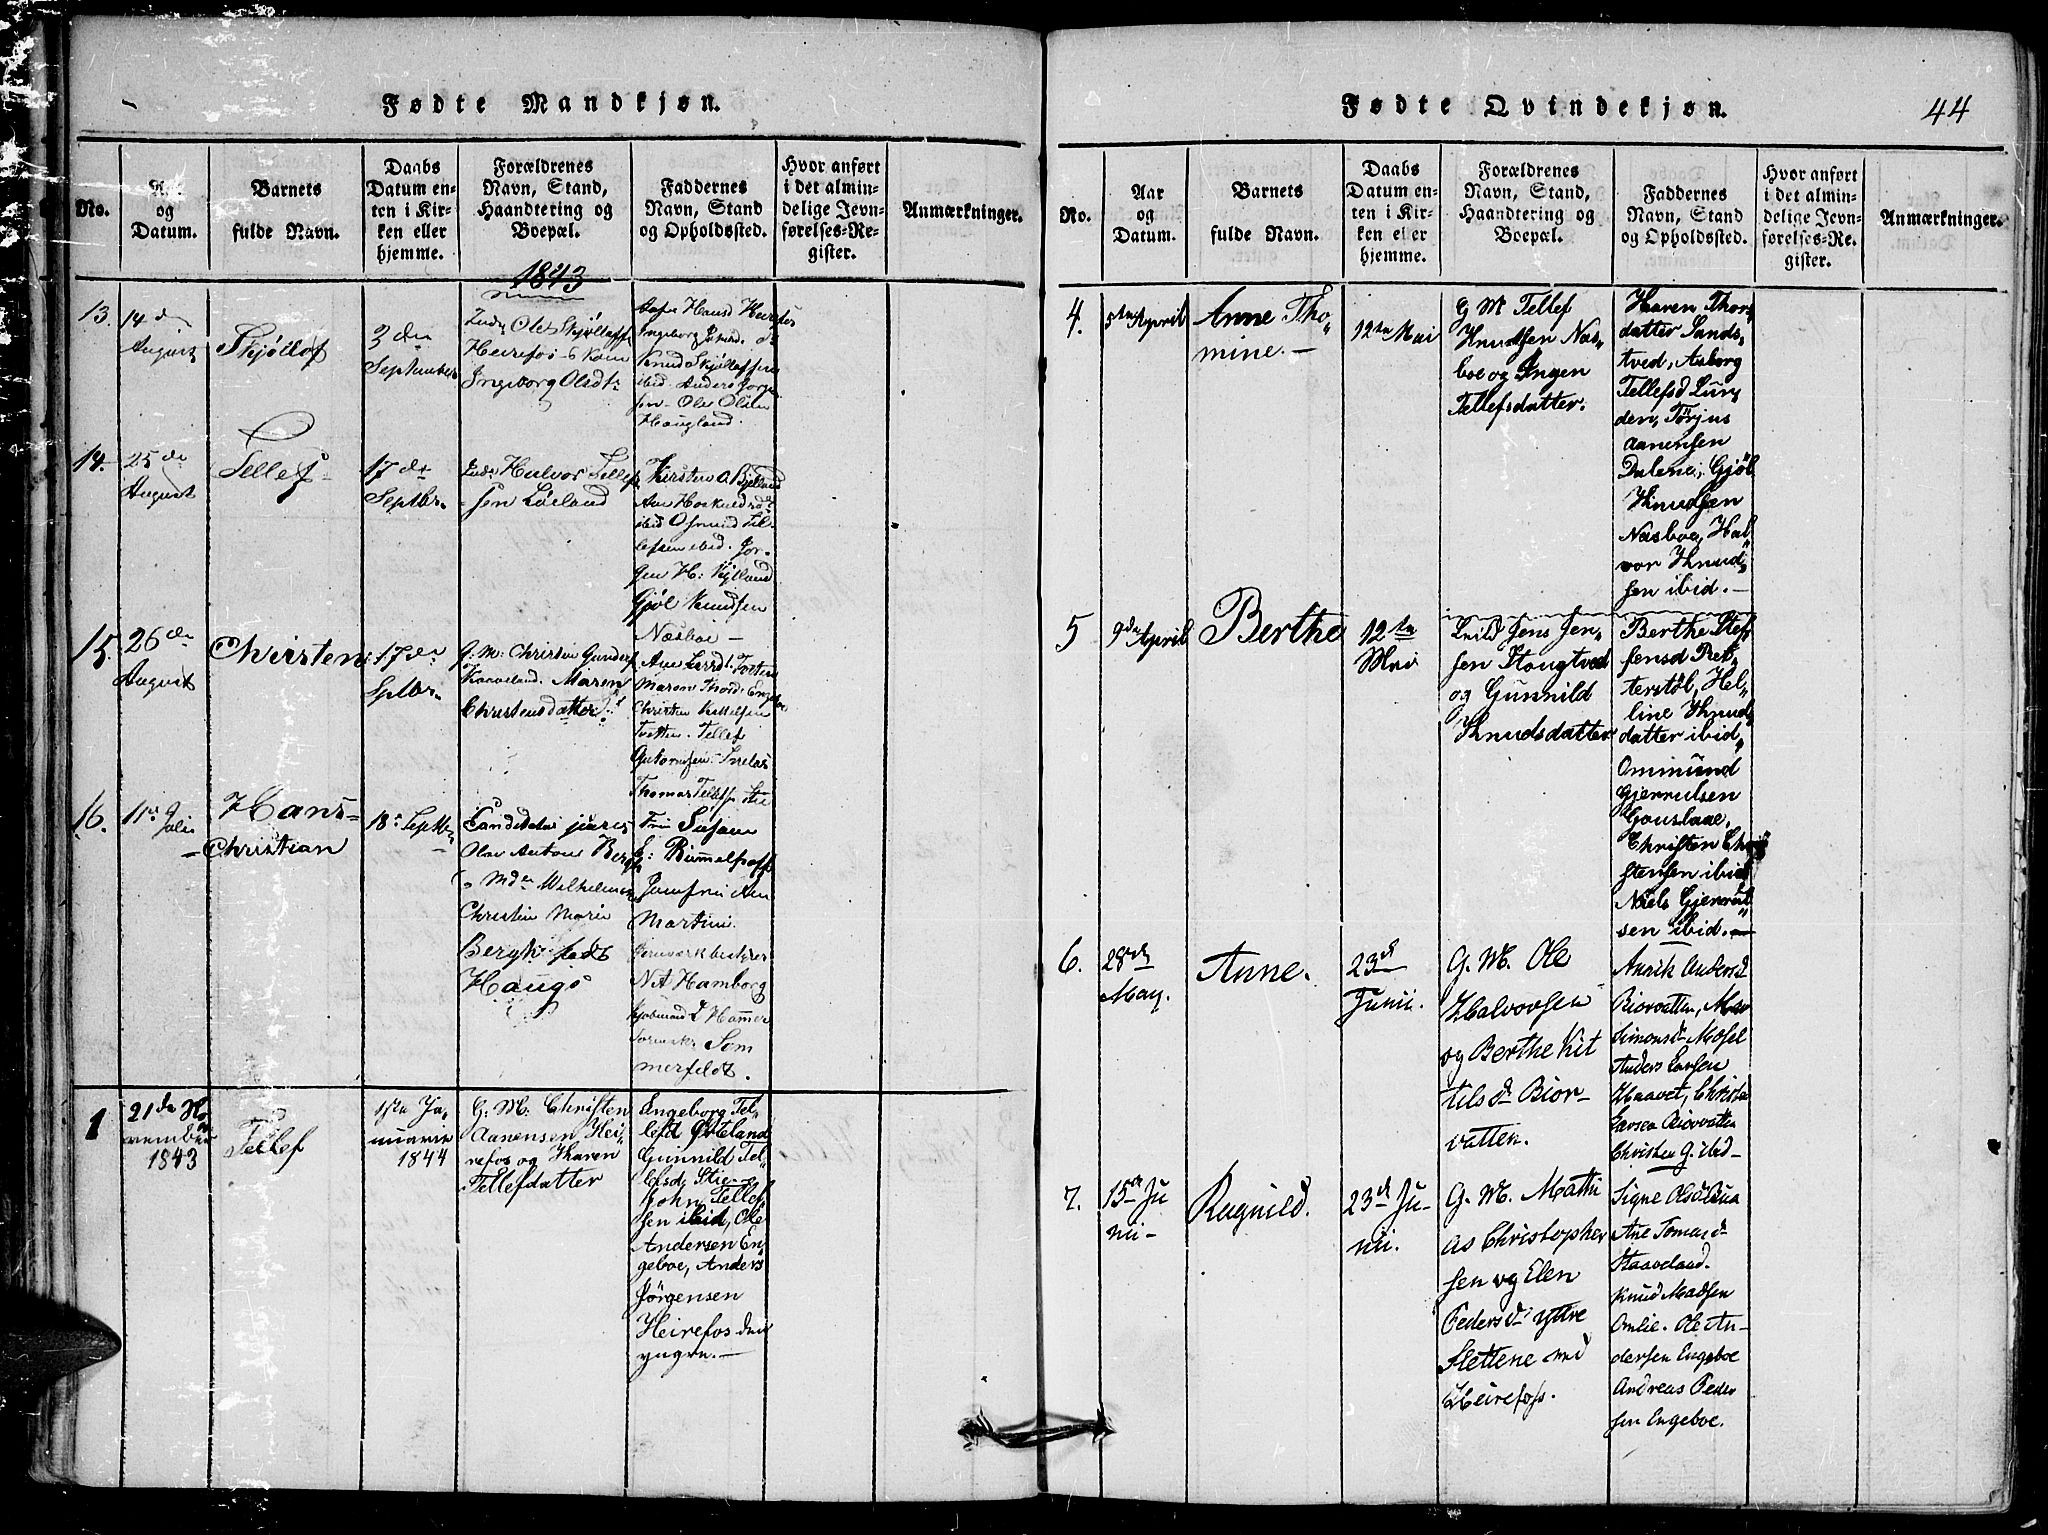 Fødte Mandkjøn.
No.
Aar
og
Datum.
Barnets
fulde Navn.
Daabs
Datum en-
ten i Kir-
ken eller
hjemme.
Forældrenes
Navn, Stand,
Haandtering og
Boepæl.
Faddernes
Navn, Stand
og Opholdssted.
Hvor anført
i det almin-
delige Jevn-
førelses-Re-
gister.
Anmærkninger.
1843
13.
14 de
August
Skjøllof
3 den
September
Ole Skjøllofs
Heirefos
Ingeborg Olsdtr
Knud Skjøllofsen
ibid. Anders Jørgen
sen. Ole Olsen
Haugland.
14.
25 de
August
Tellef
17 de
Septbr.
Halvor Tellef
sen Løiland
Kirsten O. Kylland
ibid Osmund Tel-
lefsen ibid. Jør-
gen H: Kylland
Gjøl Knudsen
Næsboe –
15.
26 de
August
Christen
17 de
Septbr.
G. M: Christen Gunders
Kaaveland. Maren
Christensdatter
Christen Kittelsen
Tvetten. Tellef
Thomas Tellefs
16.
11te Juli
Hans
Christian
18de Septbr
Candidatus juris
Ole Anton Bergh
Wilhelmine
Christine Marie
Bergh født
Haugs
Fru Susane
Jomfru Ane
Martini.
N A Hamborg
Hammer
Som
merfeldt.
1
21de No
vember
1843
Tellef
1ste Ja-
nuarii
1844
G. M: Christen
Aanensen Hei-
refos og Karen
Tellefsdatter
Engeborg Tel-
lefsd Østeland
Gunnild Tel-
lefsd, Stie,
John Tellef
sen ibid, Ole
Andersen En-
geboe, Anders
Jørgensen
Heirefos den
yngre. –
Fødte Qvindekjøn.
44
No.
Aar
og
Datum.
Barnets
fulde Navn.
Daabs
Datum en-
ten i Kir-
ken eller
hjemme.
Forældrenes
Navn, Stand,
Haandtering og
Boepæl.
Faddernes
Navn, Stand
og Opholdssted.
Hvor anført
i det almin-
delige Jevn-
førelses-Re-
gister.
Anmærkninger.
4.
5te April
Anne Tho-
mine. –
12te Mai
G M Tellef
Knudsen Næs-
boe og Ingen
Tellefsdatter.
Karen Thors
datter Sands-
tved, Asborg
Tellefsd Lun-
den, Tørjus
Aanensen
Dalene, Gjøl
Knudsen
Næsboe, Hal-
vor Knud-
sen ibid. –
5
9de April
Berthe
12te
Mai
Jens Jen-
sen Hougtved
og Gunnild
Knudsdatter
Berthe Stef-
fensd Ret-
terstøl, Hel-
line Knuds
datter ibid,
Ommund
Gjerrulsen
Gouslaae,
Christen Chri-
stensen ibid
Niels Gjerrul-
sen ibid. –
6.
28de
May.
Anne.
23d
Junii.
G. M. Ole
Halvorsen
og Berthe Kit
tilsd. Bior-
vatten.
Anrik Andersd
Biorvatten, Mar
Simonsd Mosel
Anders Larsen
Haavet, Christen
Larsen Biorvatten
Christen G. ibid –
7.
15de Ju
nii –
Ragnild.
23d Ju-
nii.
G. M. Mathi
as Christopher
sen og Elen
Pedersd. yttre
Slettene ved
Heirefos.
Signe Olsd Bua
Ane Tomasd
Kaaveland.
Knud Madsen
Omlie. Ole An-
dersen Engeboe
Andreas Peder
sen Engeboe.